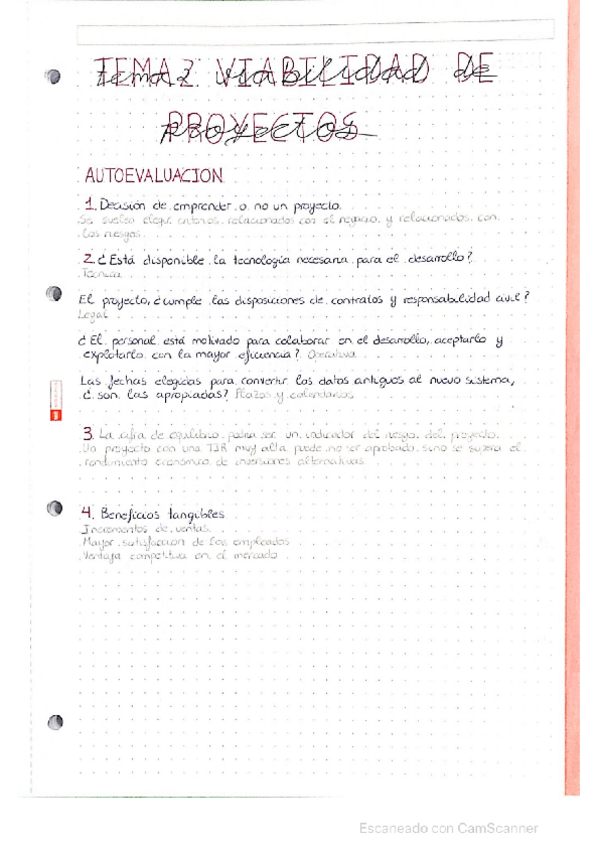 TEMA 2 VIABILIDAD DE
PROYECTOS
AUTOEVALUACION
1. Decisión de emprender o no un proyecto
Se suelen elegir criterios relacionados con el negocio y relacionados con
los riesgos
2. ¿Está disponible la tecnología necesaria para el desarrollo?
Técnica
El proyecto, ¿cumple las disposiciones de contratos y responsabilidad civil?
Legal
¿El personal está motivado para colaborar en el desarrollo, aceptarlo y
explotarlo con la mayor eficiencia? Operativa
Las fechas elegidas para convertir los datos antiguos al nuevo sistema,
¿son las apropiadas? Plazos y calendarios
3. La cifra de equilibrio podría ser un indicador del riesgo del proyecto.
Un proyecto con una TIR muy alta puede no ser aprobado, sino se supera el
rendimiento económico de inversiones alternativas
4. Beneficios tangibles
Incrementos de ventas
Mayor satisfacción de los empleados
Ventaja competitiva en el mercado
Escaneado con CamScanner